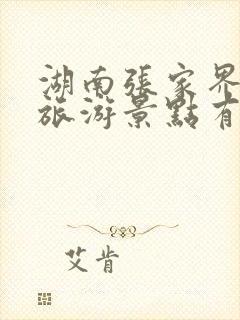 湖南張家界
旅游景點有
艾肯